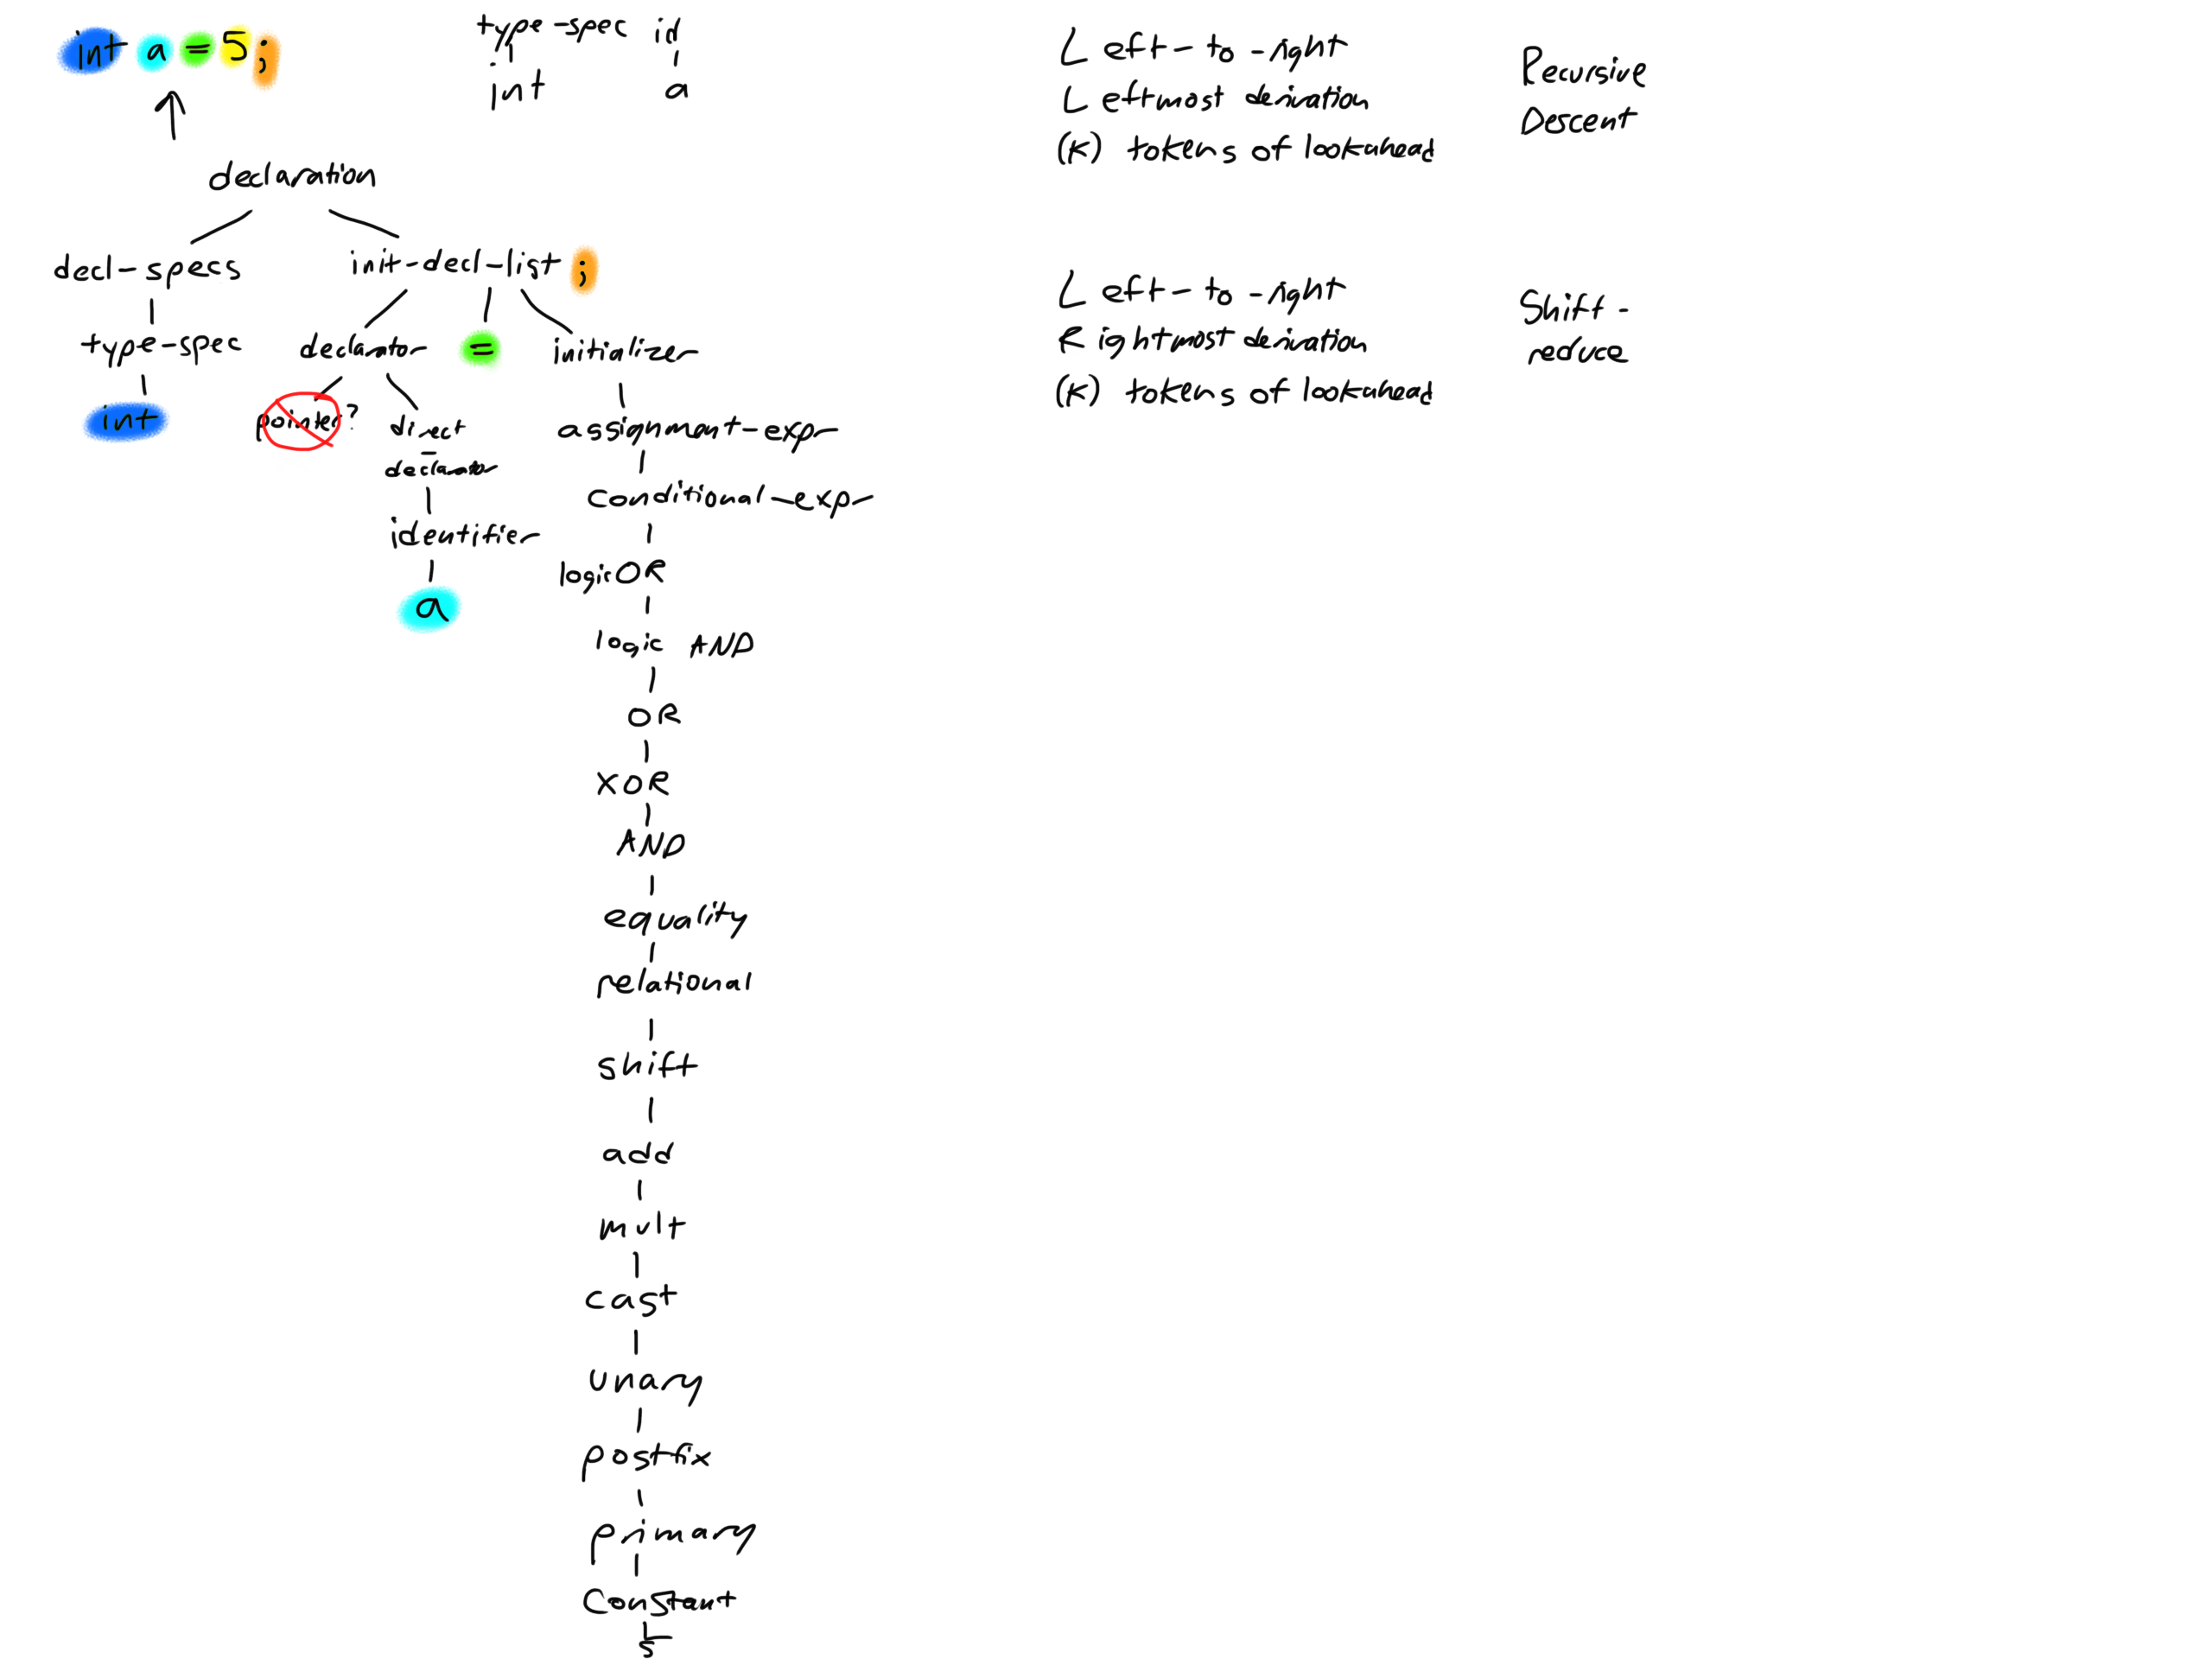 int a = 5 ;
type-spec id
int a
declaration
decl-specs init-decl-list ;
type-spec declarator = initializer
int pointer? direct
-
declarator
assignment-expr
conditional-expr
identifier
a
logicOR
logic AND
OR
XOR
AND
equality
relational
shift
add
mult
cast
unary
postfix
primary
Constant
5
Left-to-right
Leftmost derivation
(K) tokens of lookahead
Recursive
Descent
Left-to-right
Rightmost derivation
(K) tokens of lookahead
Shift-
reduce